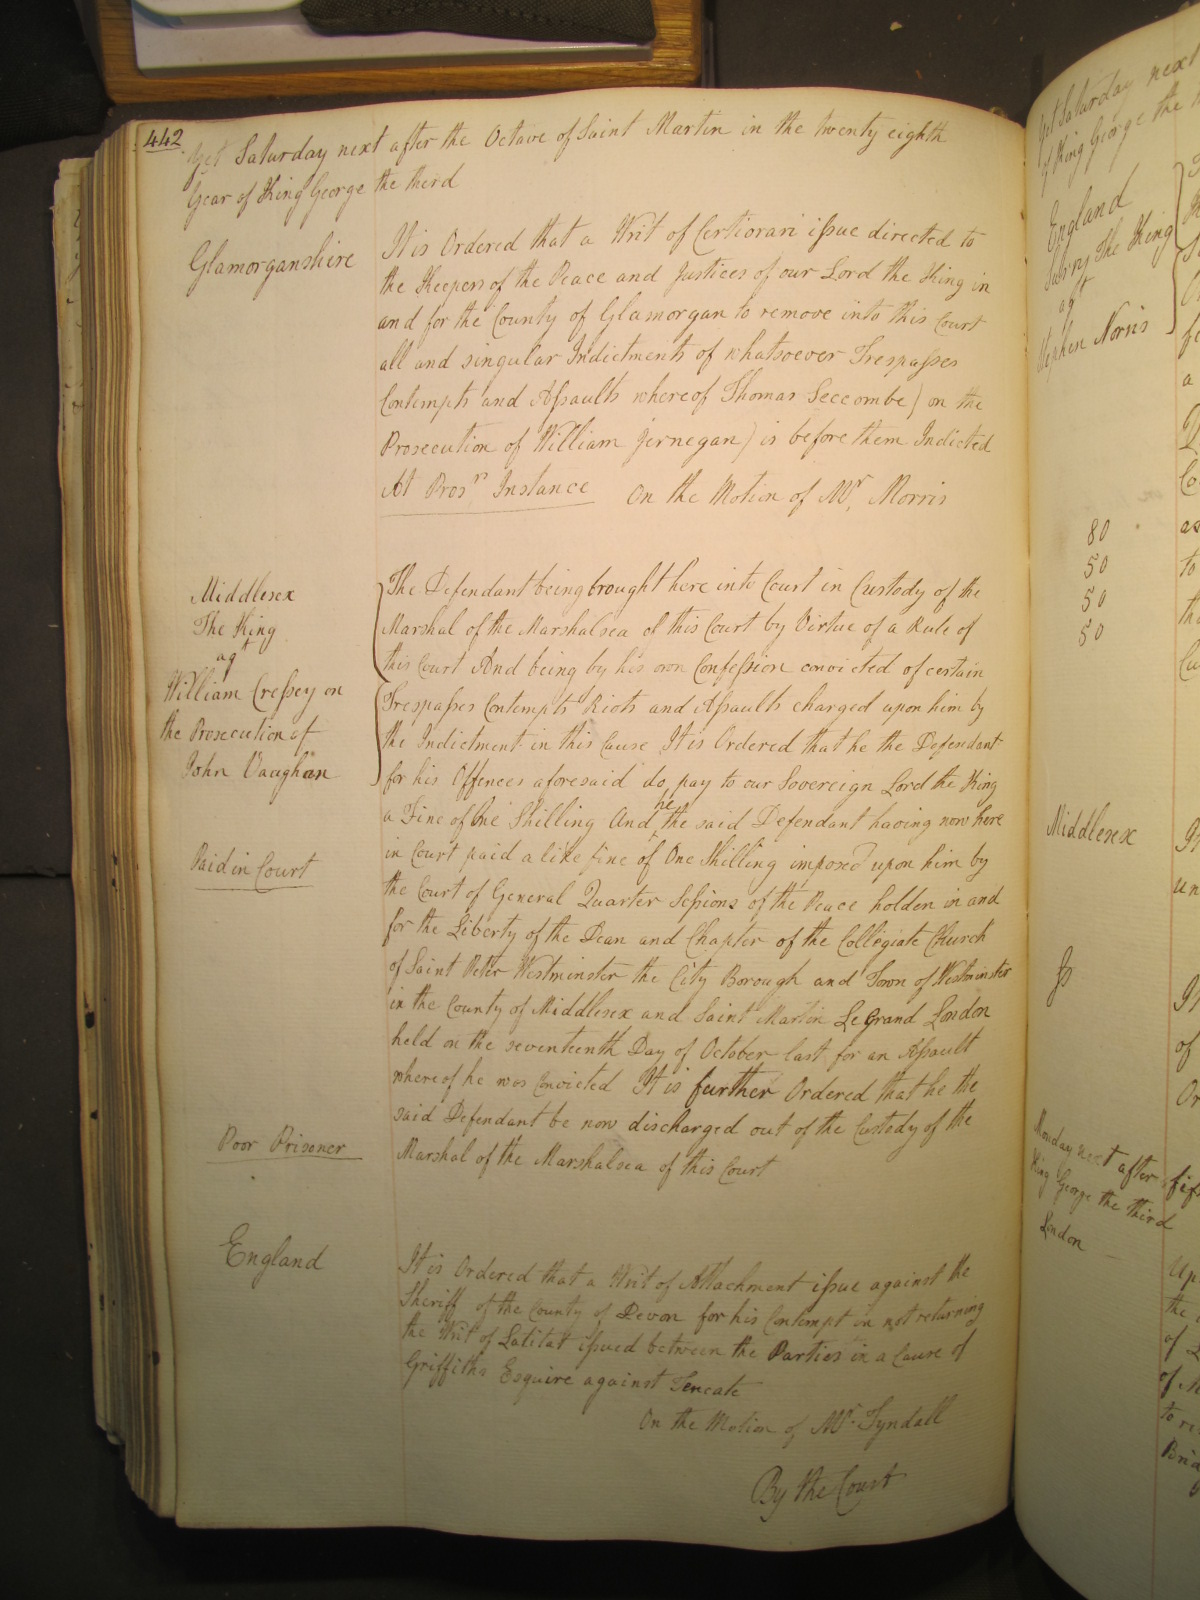 442
Yet Saturday next after the Octave of Saint Martin in the twenty eighth
Year of King George the third
Glamorganshire
It is Ordered that a Writ of Certiorari issue directed to
the Keepers of the Peace and Justices of our Lord the King in
and for the County of Glamorgan to remove into this Court
all and singular Indictments of whatsoever Trespasses
Contempts and Assaults whereof Thomas Seccombe) on the
Prosecution of William Jernegan) is before them Indicted
At Prosrs Instance On the Motion of Mr. Morris
Middlesex
The King
agt
William Cressey on
the Prosecution of
John Vaughan
The Defendant being brought here into Court in Custody of the
Marshal of the Marshalsea of this Court by Virtue of a Rule of
this Court And being by his own Confession convicted of certain
Trespasses Contempts Riots and Assaults charged upon him by
the Indictment in this Cause It is Ordered that he the Defendant
for his Offences aforesaid do pay to our Sovereign Lord the King
a Fine of One Shilling And he the said Defendant having now here
in Court paid a like fine of One Shilling imposed upon him by
the Court of General Quarter Sessions of the Peace holden in and
for the Liberty of the Dean and Chapter of the Collegiate Church
of Saint Peter Westminster the City Borough and Town of Westminster
in the County of Middlesex and Saint Martin Le Grand London
held on the seventeenth Day of October last for an Assault
whereof he was Convicted It is further Ordered that he the
said Defendant be now discharged out of the Custody of the
Marshal of the Marshalsea of this Court
Paid in Court
Poor Prisoner
England
It is Ordered that a Writ of Attachment issue against the
Sheriff of the County of Devon for his Contempt in not returning
the Writ of Latitat issued between the Parties in a Cause of
Griffiths Esquire against Tencate
On the Motion of Mr. Tyndall
By the Court
Yet Saturday next
of King George the
England
Surry The King
agt
Stephen Norris
80
50
50
50
Middlesex
Monday next after fif
King George the third
London